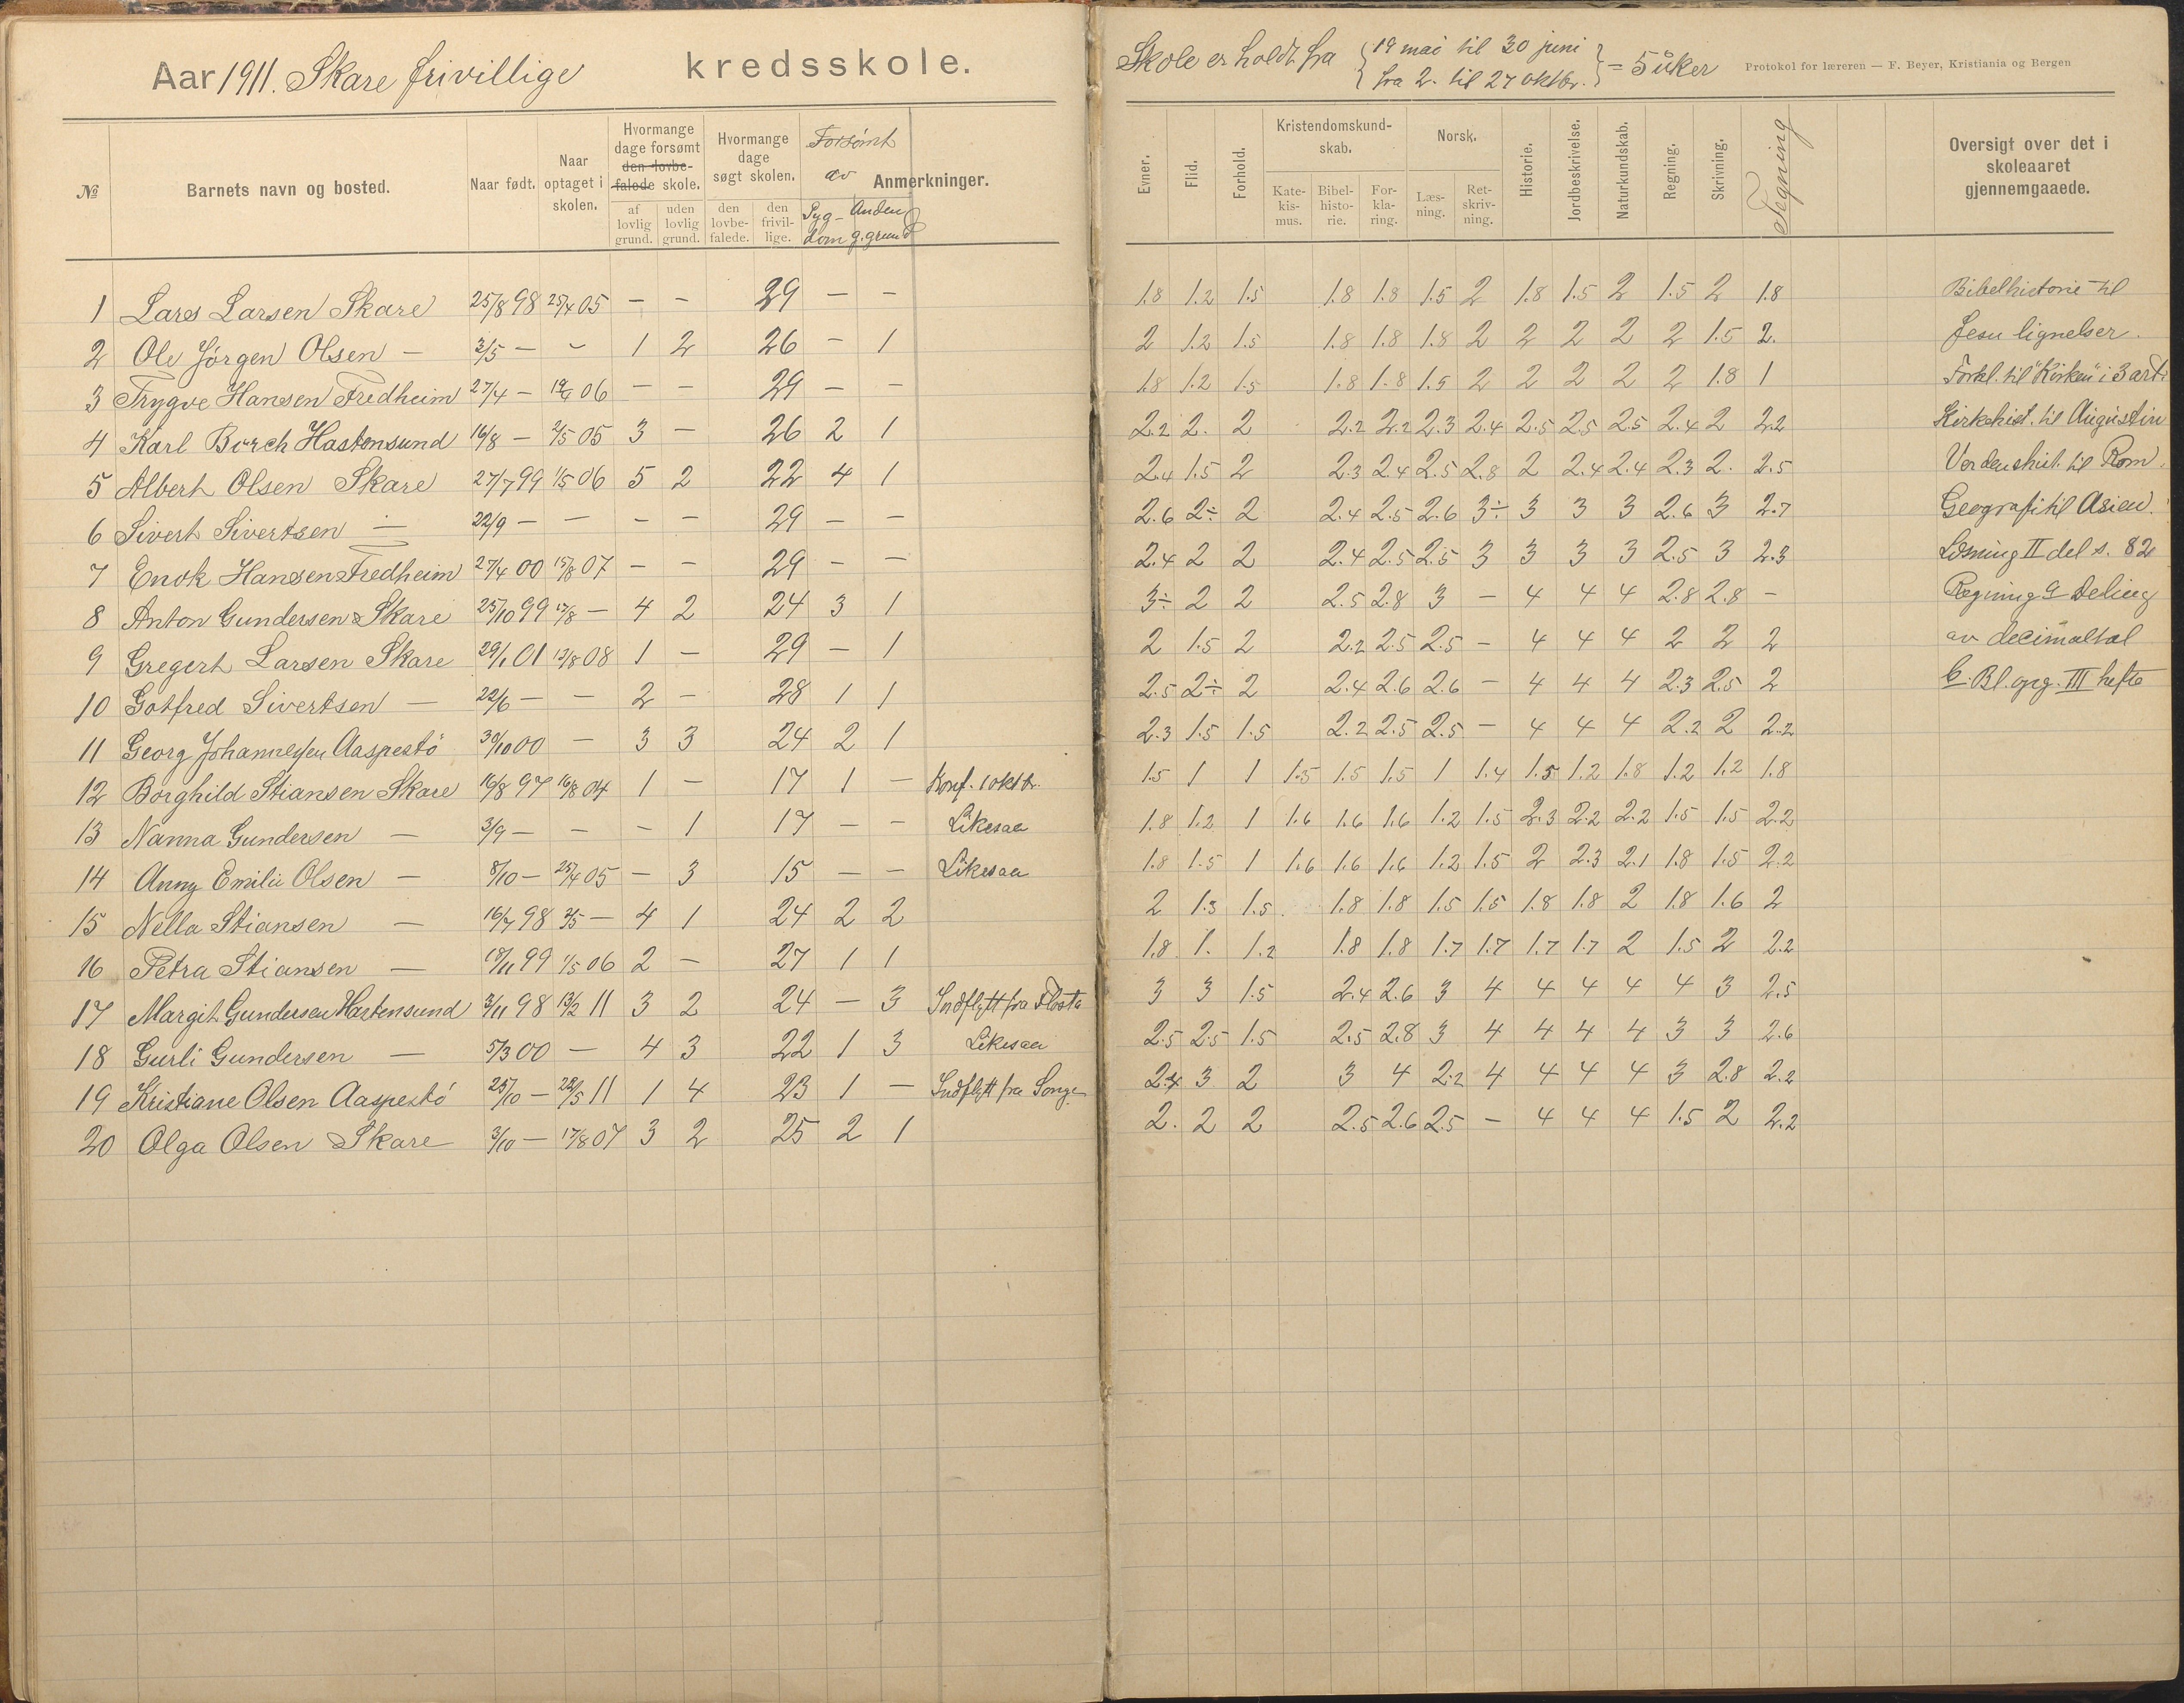 Aar 1911. Skare frivillige kredsskole.
№ Barnets navn og bosted. Naar født. Naar optaget i skolen. Hvormange dage forsømt den lovbe-falede skole. af lovlig grund. uden lovlig grund. Hvormange dage søgt skolen. den lovbe-falede. den frivil-lige. Forsømt av Syg-dom Anden g. grund Anmerkninger.
1 Lars Larsen Skare 25/8 98 25/4 05 – – 29 – –
2 Ole Jørgen Olsen — 3/5 – – 1 2 26 – 1
3 Trygve Hansen Fredheim 27/4 – 06 – – 29 – –
4 Karl Birch Hastensund 16/8 – 2/5 05 3 – 26 2 1
5 Albert Olsen Skare 27/7 99 1/5 06 5 2 22 4 1
6 Sivert Sivertsen — 22/9 – – – – 29 – –
7 Enok Hansen Fredheim 27/4 00 07 – – 29 – –
8 Anton Gundersen Skare 25/10 99 – 4 2 24 3 1
9 Gregert Larsen Skare 29/1 01 08 1 – 29 – 1
10 Gotfred Sivertsen — 22/6 – – 2 – 28 1 1
11 Georg Johannessen Aaspestö 30/10 00 – 3 3 24 2 1
12 Borghild Stiansen Skare 16/8 97 16/8 04 1 – 17 1 – Konf. 1 oktbr.
13 Nanna Gundersen — 3/9 – – – 1 17 – – Likesaa
14 Anny Emilie Olsen — 8/10 – 25/4 05 – 3 15 – – Likesaa
15 Nella Stiansen — 16/7 98 2/5 – 4 1 24 2 2
16 Petra Stiansen — 18/11 99 1/5 06 2 – 27 1 1
17 Margit Gundersen Hastensund 3/11 98 13/2 11 3 2 24 – 3 Indflytt fra Flosta
18 Gurli Gundersen — 5/3 00 – 4 3 22 1 3 Likesaa
19 Kristiane Olsen Aaspestö 25/10 – 22/5 11 1 4 23 1 – Indflytt fra Songe
20 Olga Olsen Skare 3/10 – 17/8 07 3 2 25 2 1
Skole er holdt fra { 19 mai til 30 juni
fra 2. til 27 oktbr. } = 5 uker
Protokol for læreren — F. Beyer, Kristiania og Bergen
Evner. Flid. Forhold. Kristendomskund-skab. Kate-kis-mus. Bibel-histo-rie. For-kla-ring. Norsk. Læs-ning. Ret-skriv-ning. Historie. Jordbeskrivelse. Naturkundskab. Regning. Skrivning. Tegning Oversigt over det i skoleaaret gjennemgaaede.
1.8 1.2 1.5 1.8 1.8 1.5 2 1.8 1.5 2 1.5 2 1.8 Bibelhistorie til
2 1.2 1.5 1.8 1.8 1.8 2 2 2 2 2 1.5 2. Jesu lignelser.
1.8 1.2 1.5 1.8 1.8 1.5 2 2 2 2 2 1.8 1 Forkl. til "Kirken" i 3 art.
2.2 2. 2 2.2 2.2 2.3 2.4 2.5 2.5 2.5 2.4 2 2.2 Kirkehist. til Augustin
2.4 1.5 2 2.3 2.4 2.5 2.8 2 2.4 2.4 2.3 2. 2.5 Verdenshist. til Rom.
2.6 2÷ 2 2.4 2.5 2.6 3÷ 3 3 3 2.6 3 2.7 Geografi til Asien.
2.4 2 2 2.4 2.5 2.5 3 3 3 3 2.5 3 2.3 Læsning II del s. 82
3÷ 2 2 2.5 2.8 3 – 4 4 4 2.8 2.8 – Regning Deling
2 1.5 2 2.2 2.5 2.5 – 4 4 4 2 2 2 av decimaltal
2.5 2÷ 2 2.4 2.6 2.6 – 4 4 4 2.3 2.5 2 III hefte
2.3 1.5 1.5 2.2 2.5 2.5 – 4 4 4 2.2 2 2.2
1.5 1 1 1.5 1.5 1.5 1 1.4 1.5 1.2 1.8 1.2 1.2 1.8
1.8 1.2 1 1.6 1.6 1.6 1.2 1.5 2.3 2.2 2.2 1.5 1.5 2.2
1.8 1.5 1 1.6 1.6 1.6 1.2 1.5 2 2.3 2.1 1.8 1.5 2.2
2 1.3 1.5 1.8 1.8 1.5 1.5 1.8 1.8 2 1.8 1.6 2
1.8 1. 1.2 1.8 1.8 1.7 1.7 1.7 1.7 2 1.5 2 2.2
3 3 1.5 2.4 2.6 3 4 4 4 4 4 3 2.5
2.5 2.5 1.5 2.5 2.8 3 4 4 4 4 3 3 2.6
2.4 3 2 3 4 2.2 4 4 4 4 3 2.8 2.2
2. 2 2 2.5 2.6 2.5 – 4 4 4 1.5 2 2.2